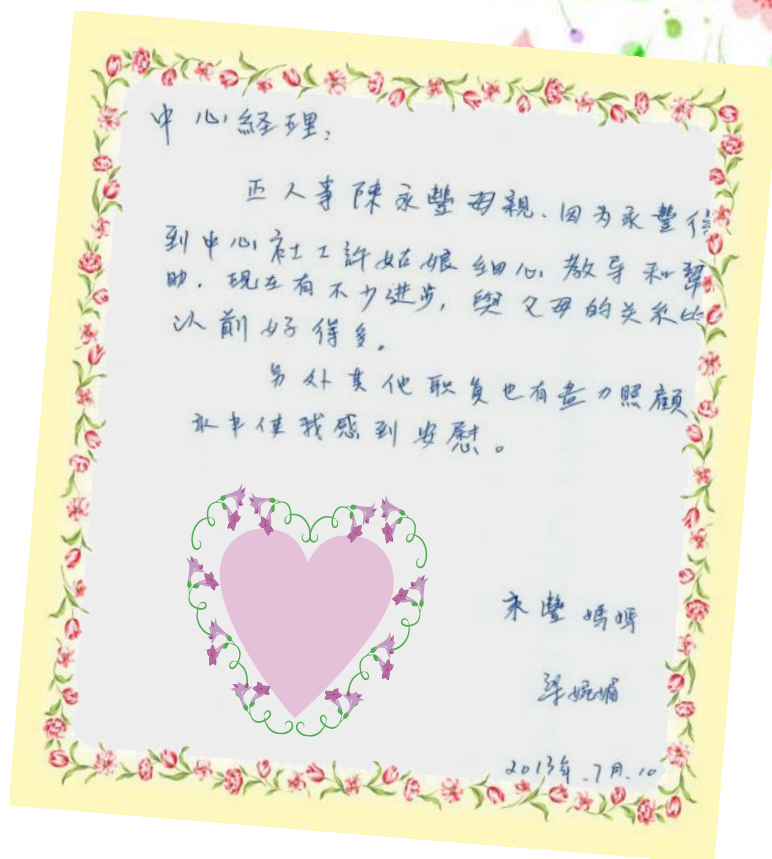 中心経理：
本人事陳永豐母親、因为永豐得
到中心社工許姑娘细心教导和幫
助．现在有不少进步，與父母的关系比
以前好得多。
另外其他职員也有盡力照顧
永丰使我感到安慰。
永豐媽媽
梁婉媚
2013年.7月.10